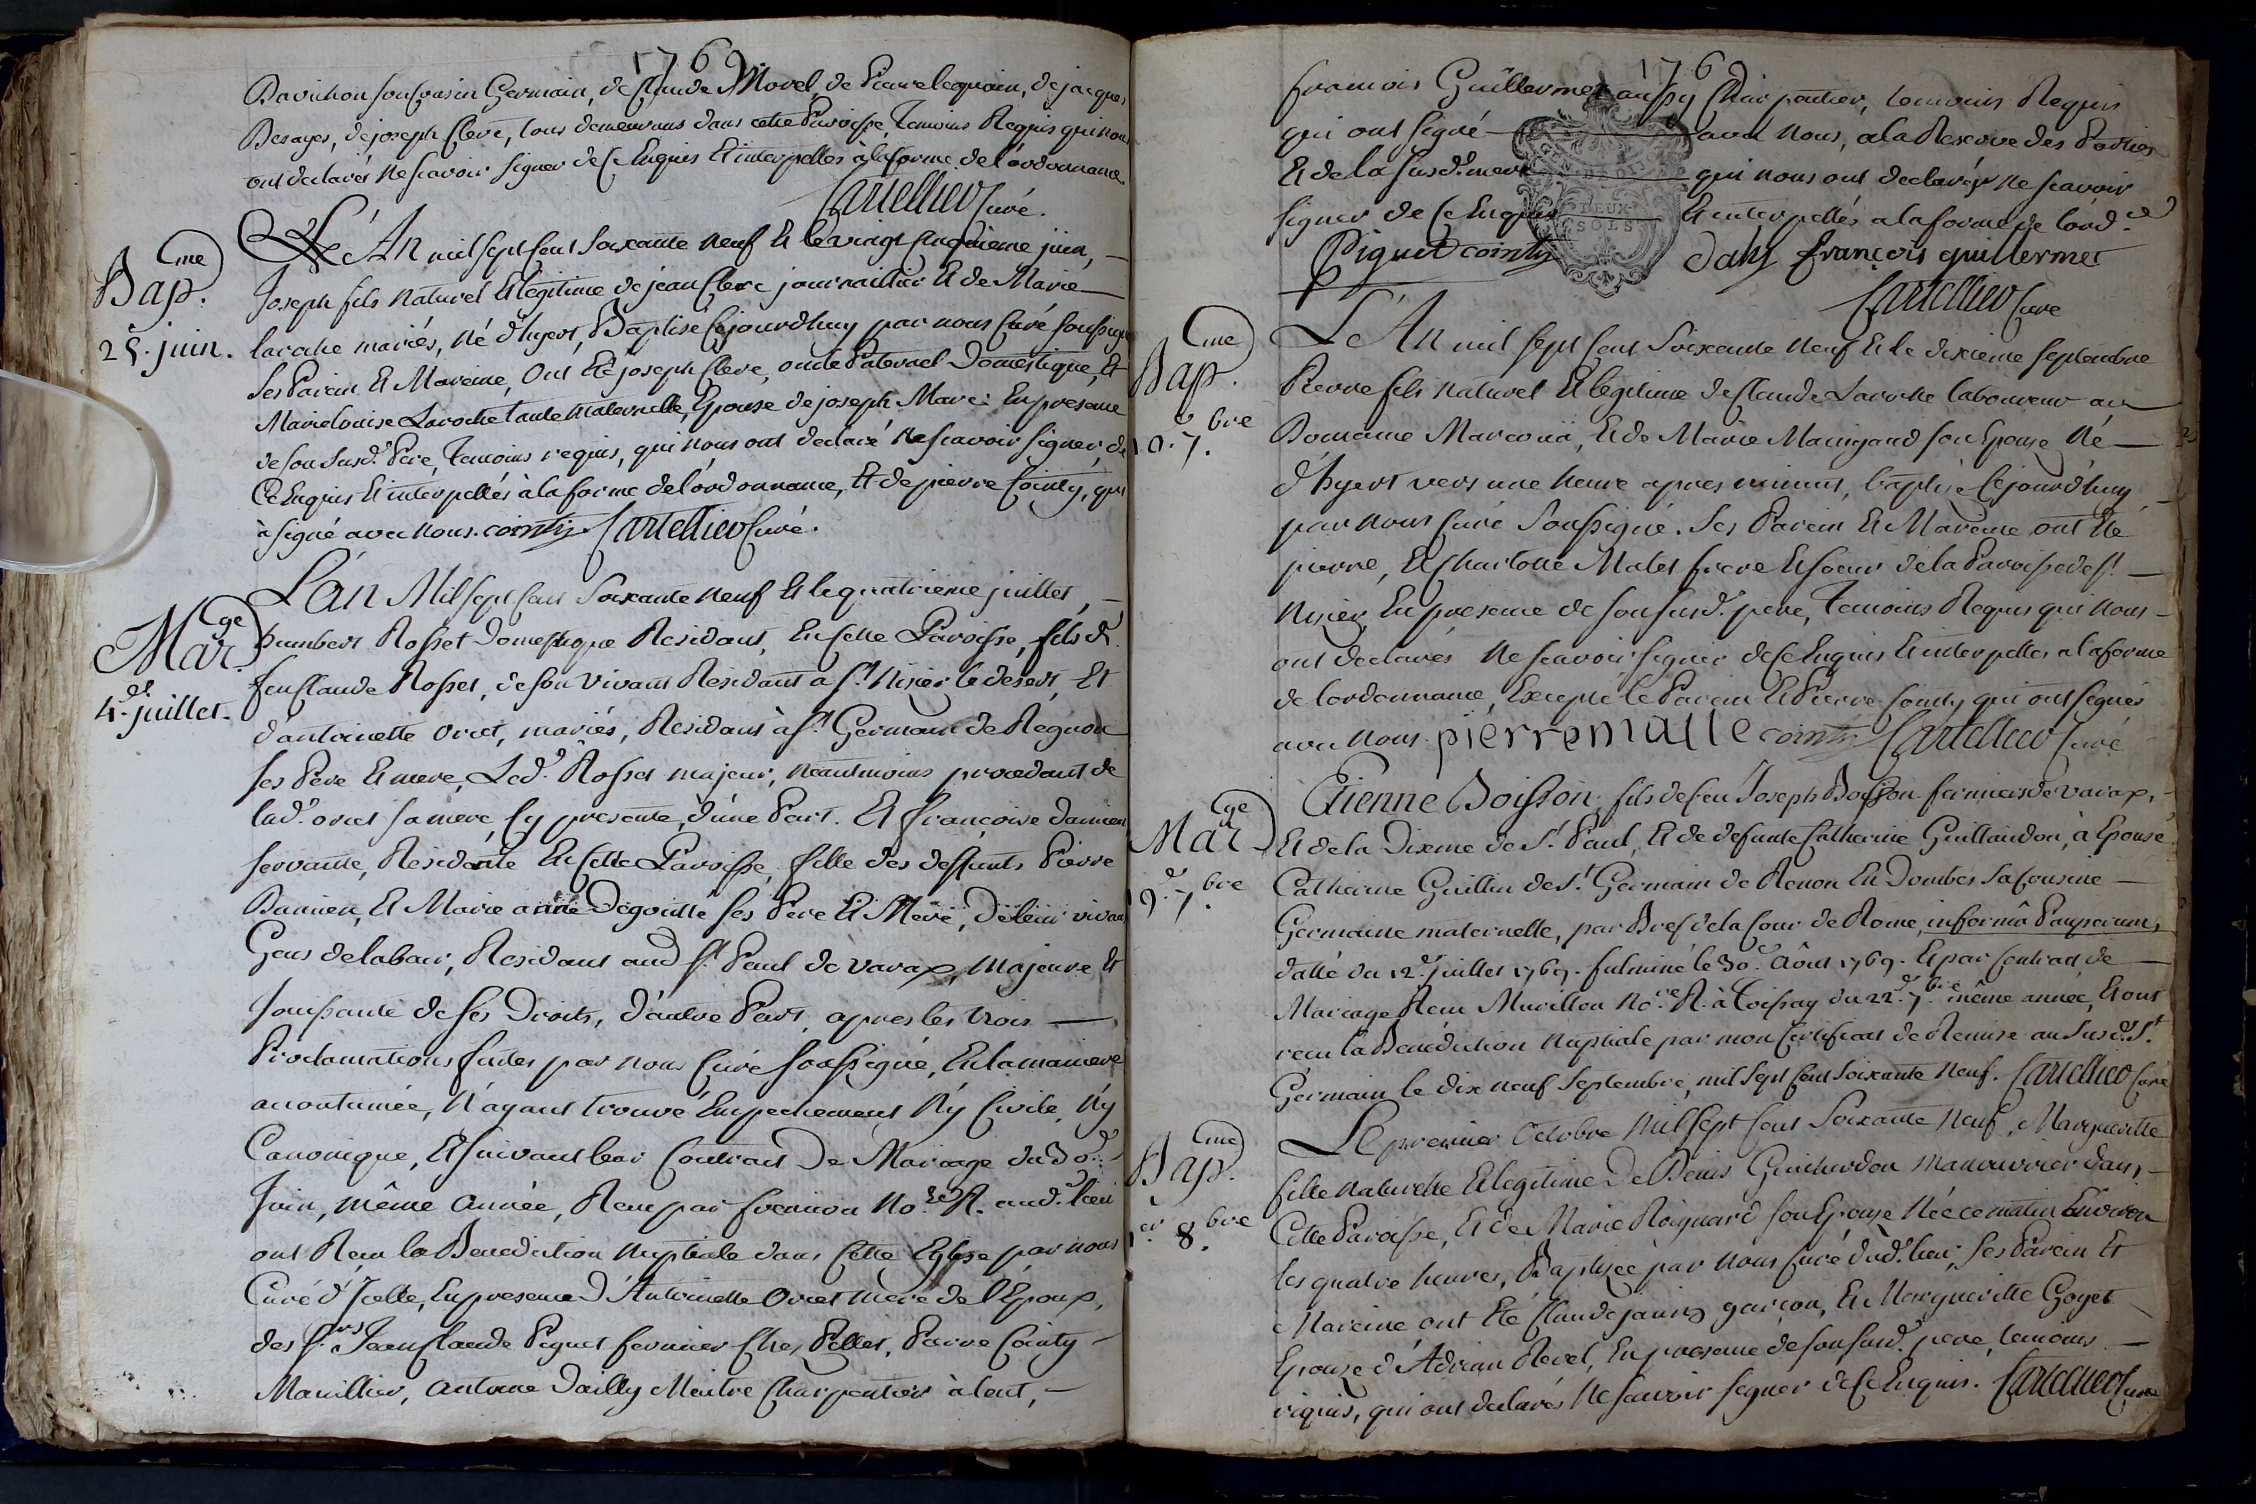 1769
Bavichon son Cousin Germain, de Claude Morel, de Pierre lequin, de jacques
Besayes, de joseph Clere, tous demeurans dans cette Paroisse, Temoins Requis qui nous
ont declarés Ne scavoir signer de Ce Enquis Et interpellés à la forme de l'ordonnance.
Cartellier Curé.
Bap.me
25. juin.
L'An mil sept Cent soixante Neuf Et le vingt Cinquieme juin,
Joseph fils Naturel Et legitime de jean Clere journaillier Et de Marie
laroche mariés, Né d'hyert, Baptisé Cejourdhuy par nous Curé soussigné
ses Parein Et Mareine, Ont Eté joseph Clere, oncle Paternel Domestique, Et
Marie louise Laroche tante Maternelle, Epouse de joseph Mare: En presence
de son susd.t Pere, Temoins requis, qui nous ont declaré Ne scavoir signer, de
Ce Enquis Et interpellés à la forme de l'ordonnance, Et de pierre Cointy, qui
à signé avec Nous. cointy Cartellier Curé.
Mar.ge
4.e juillet.
L'an Mil sept Cent soixante Neuf Et le quatrieme juillet,
humbert Rosset Domestique Residant, En Cette Paroisse, fils de
feu Claude Rosset, de son vivant Residant à S.t Nizier le desert, Et
d'antoinette Oriet, mariés, Residans à S.t Germain de Régnon
ses Pere Et mere, Led.t Rosset majeur, Neantmoins procedant de
lad.e oriet sa mere, Cy presente, d'une Part. Et françoise damien
servante, Residante En Cette Paroisse, fille des deffunts Pierre
Damien, Et Marie anne Degoutte ses Pere Et Mere, De leur vivant
Gens de labeur, Residans aud.t S.t Paul de varax, Majeure Et
Jouissante de ses Droits, d'autre Part, apres les trois
Proclamations faites par nous Curé soussigné, En la maniere
accoutumée, N'ayant trouvé Empechement Ny Civile, Ny
Canonique, Et suivant leur Contract De Mariage du 30.e
Juin, même année, Recu par frernion No.re R. aud.t lieu
ont Recu la Benediction Nuptiale dans Cette Eglise par nous
Curé d'Icelle, En presence d'Antoinette Oriet Mere de l'Epoux,
des S.rs Jean Claude Piquet fermier Chez Pillet, Pierre Cointy
Marillier, Antoine Dailly Maitre Charpentier à lent,
1769
francois Guillermet aussy Charpentier, temoins Requis
qui ont signé avec Nous, à la Reserve des Parties
Et de la susd.e mere qui nous ont declarés ne scavoir
signer de Ce Enquis Et interpellés à la forme de l'ord.ce
GEN. DEUX SOLS
Piquet cointy Dally françois guillermet
Cartellier Curé
Bap.me
10. 7.bre
L'An mil sept Cent soixante Neuf Et le dixieme septembre
Pierre fils naturel Et legitime de Claude Laroche laboureur au
Domaine Marcoux, Et de Marie Maingand son Epouse Né
d'hyert vers une heure apres minuit, baptisé Cejourd'huy
par Nous Curé Soussigné. Ses Parein Et Mareine ont Eté
pierre, Et Charlotte Malet frere Et soeur de la Paroisse de S.t
Nizier En presence de son susd.t pere, Temoins Requis qui nous
ont declarés Ne scavoir signer de Ce Enquis Et interpellés à la forme
de l'ordonnance, Excepté le Parein Et Pierre Cointy qui ont signés
avec Nous pierre malle cointy Cartellier Curé
Mar.ge
19.e 7.bre
Etienne Boisson, fils de feu Joseph Boisson fermier de varax,
Et de la Dixme de S.t Paul, Et de defunte Catherine Guillaudon, à Epousé
Catherine Guillin de S.t Germain de Renon En Dombes sa Cousine
Germaine maternelle, par Bref de la Cour de Rome, in formâ Pauperum,
datté du 12.e juillet 1769. fulminé le 30.e Août 1769. Et par Contract de
Mariage Recu Murillon No.re R. à Toissay du 22.e 7.bre même année, Et ont
recu la Benediction Nuptiale par mon Certificat de Remise au susd.t S.t
Germain le dix neuf Septembre, mil sept Cent soixante Neuf. Cartellier Curé
Bap.me
1.er 8.bre
Le premier Octobre Mil sept Cent soixante Neuf, Margueritte
fille Naturelle Et legitime De Denis Guicherdon Manouvrier dans,
Cette Paroisse, Et de Marie Roignard son Epouse Née ce matin Environ
les quatre heures, Baptisée par Nous Curé dud.t lieu, ses Parein Et
Mareine ont Eté Claude jauny garcon, Et Margueritte Goyet
Epouse d'Adrian Revel, En presence de son susd.t pere, temoins
requis, qui ont declarés Ne scavoir signer de Ce Enquis. Cartellier Curé